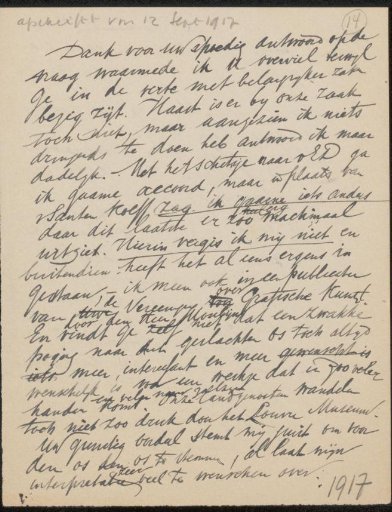 afschrift van 12 Sept 1917
14
Dank voor uw spoedig antwoord op de
vraag waarmede ik U overviel terwijl
Ge in de verte met belangrijker zaken
bezig zijt. Haast is er bij onze zaak
toch niet, maar aangezien ik niets
dringends te doen heb antwoord ik maar
dadelijk. Met het schetsje naar ga
ik gaarne accoord, maar in plaats van
v Santen Kolff zag ik gaarne iets anders
daar dit laatste er zoo machinaal
uitziet. Hierin vergis ik mij niet en
buitendien heeft het al eens ergens in
gestaan, ik meen ook in een publicatie
van de Vereeniging over Grafische Kunst.
En vindt ge niet dat een zwakke
poging naar den geslachten os toch altijd
meer interessant en meer
is van een werkje dat is zoo veler
handen komt. Onze landgenooten wandelen
toch niet zoo druk door het Louvre Museum!
Uw gunstig oordeel stemt mij juist om voor
den os te stemmen al laat mijn
interpretatie zeer veel te wenschen over.
1917